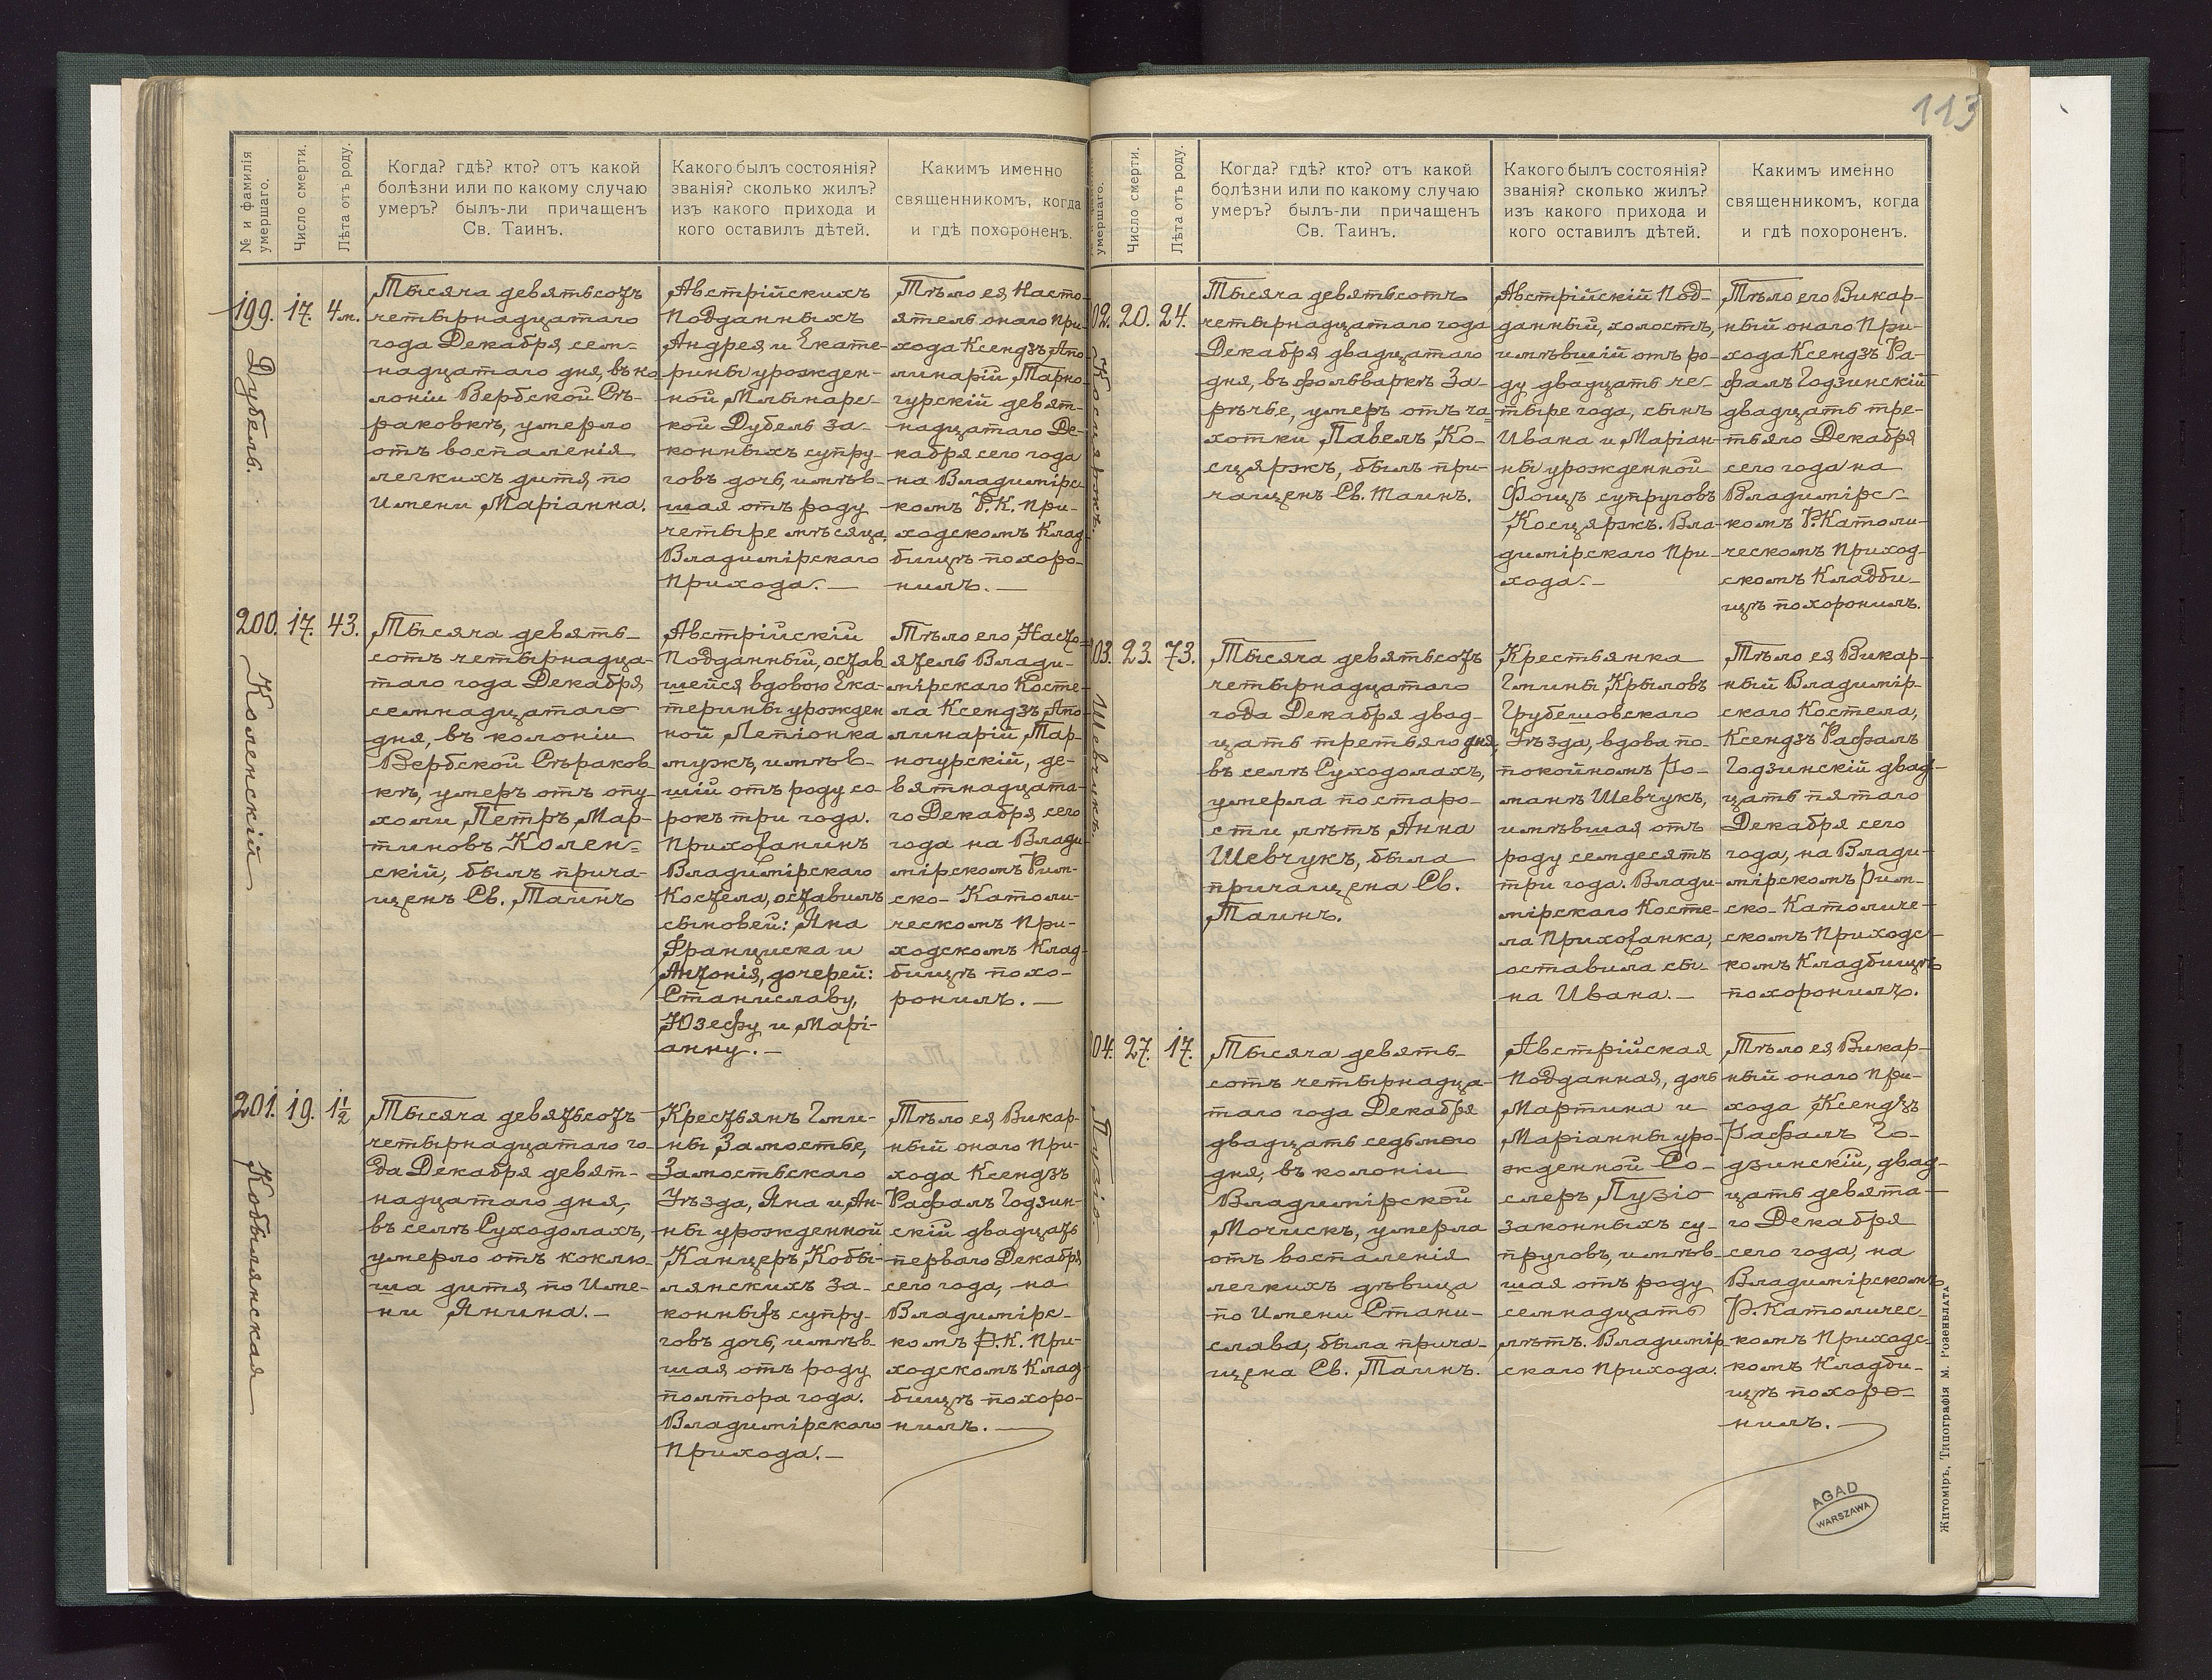 113
№ и фамилія умершаго.
Число смерти.
Лѣта отъ роду.
Когда? гдѣ? кто? отъ какой
болѣзни или по какому случаю
умеръ? былъ-ли причащенъ
Св. Таинъ.
Какого былъ состоянія?
званія? сколько жилъ?
изъ какого прихода и
кого оставилъ дѣтей.
Какимъ именно
священникомъ, когда
и гдѣ похороненъ.
199.
Дубель.
17.
4 м.
Тысяча девятьсотъ
четырнадцатаго
года Декабря сем-
надцатаго дня, въ ко
лоніи Вербской Сѣ-
раковкѣ, умерло
отъ воспаленія
легкихъ дитя, по
Имени Маріанна.
Австрійскихъ
Подданныхъ
Андрея и Екате-
рины урожден-
ной Млынарс-
кой Дубель за-
конныхъ супру-
говъ дочь, имѣв-
шая отъ роду
четыре мѣсяца,
Владимірскаго
Прихода. —
Тѣло ея Насто-
ятель онаго При-
хода Ксендзъ Апо
линарій Тарно-
гурскій девят-
надцатаго Де-
кабря сего года
на Владимірс-
комъ Р. К. При-
ходскомъ Клад-
бищѣ похоро-
нилъ. —
200.
Коленскій
17.
43.
Тысяча девять-
сотъ четырнадца-
таго года Декабря
семнадцатаго
дня, въ колоніи
Вербской Сѣраков
кѣ, умеръ отъ опу-
холи Петръ Мар-
тиновъ Колен-
скій, былъ прича-
щенъ Св. Таинъ
Австрійскій
Подданный, остав
шейся вдовою Ека-
терины урожден
ной Лепіонка
мужъ, имѣв-
шій отъ роду со
рокъ три года.
Прихожанинъ
Владимірскаго
Костела, оставилъ
сыновей: Яна
Франциска и
Антонія, дочерей:
Станиславу,
Юзефу и Марі-
анну. —
Тѣло его, Насто-
ятель Влади-
мірскаго Косте-
ла Ксендзъ Апо-
линарій Тар-
ногурскій, де-
вятнадцата-
го Декабря сего
года на Влади
мірскомъ Рим-
ско-Католи-
ческомъ При-
ходскомъ Клад-
бищѣ похо-
ронилъ. —
201.
Кобылянская
19.
1½
Тысяча девятьсотъ
четырнадцатаго го-
да Декабря девят-
надцатаго дня,
въ селѣ Суходолахъ,
умерло отъ коклю-
ша дитя по Име-
ни Янина. —
Крестьянъ Гми-
ны Замостье,
Замостьскаго
Уѣзда, Яна и Ан-
ны урожденной
Канцеръ Кобы-
лянскихъ за-
конныхъ супру-
говъ дочь, имѣв-
шая отъ роду
полтора года.
Владимірскаго
Прихода. —
Тѣло ея Викар-
ный онаго При-
хода Ксендзъ
Рафалъ Годзин-
скій двадцать
перваго Декабря
сего года, на
Владимірс-
комъ Р. К. При-
ходскомъ Клад-
бищѣ похоро-
нилъ. —
умершаго.
Число смерти.
Лѣта отъ роду.
Когда? гдѣ? кто? отъ какой
болѣзни или по какому случаю
умеръ? былъ-ли причащенъ
Св. Таинъ.
Какого былъ состоянія?
званія? сколько жилъ?
изъ какого прихода и
кого оставилъ дѣтей.
Какимъ именно
священникомъ, когда
и гдѣ похороненъ.
02.
Косцяржъ.
20.
24.
Тысяча девятьсотъ
четырнадцатаго года
Декабря двадцатаго
дня, въ фольваркѣ За-
рѣчье, умеръ отъ ча-
хотки Павелъ Ко-
сцяржъ, былъ при-
чащенъ Св. Таинъ.
Австрійскій Под-
данный, холостъ,
имѣвшій отъ ро-
ду двадцать че-
тыре года, сынъ
Ивана и Маріан-
ны урожденной
Фощъ супруговъ
Косцяржъ. Вла-
димірскаго При-
хода. —
Тѣло его Викар-
ный онаго При-
хода Ксендзъ Ра-
фалъ Годзинскій
двадцать тре-
тьяго Декабря
сего года на
Владимірс-
комъ Р. Католи-
ческомъ Приход-
скомъ Кладби-
щѣ похоронилъ.
03.
Шевчукъ
23.
73.
Тысяча девятьсотъ
четырнадцатаго
года Декабря двад-
цать третьяго дня,
въ селѣ Суходолахъ,
умерла по старо-
сти лѣтъ Анна
Шевчукъ, была
причащена Св.
Таинъ.
Крестьянка
Гмины Крыловъ
Грубешовскаго
Уѣзда, вдова по-
покойномъ Ро-
манѣ Шевчукъ,
имѣвшая отъ
роду семдесятъ
три года. Влади-
мірскаго Косте-
ла Прихожанка,
оставила сы-
на Ивана. —
Тѣло ея Викар-
ный Владимір-
скаго Костела,
Ксендзъ Рафалъ
Годзинскій двад-
цать пятаго
Декабря сего
года, на Влади-
мірскомъ Рим-
ско-Католиче-
скомъ Приходс-
комъ Кладбищѣ
похоронилъ.
04.
Пузіо.
27.
17.
Тысяча девять-
сотъ четырнадца-
таго года Декабря
двадцать седьмого
дня, въ колоніи
Владимірской
Мочискъ, умерла
отъ воспаленія
легкихъ дѣвица
по Имени Стани-
слава, была прича-
щена Св. Таинъ.
Австрійская
Подданная, дочь
Мартина и
Маріанны уро-
жденной Со-
слеръ Пузіо
законныхъ су-
пруговъ, имѣв-
шая отъ роду
семнадцать
лѣтъ. Владимір-
скаго Прихода.
Тѣло ея Викар-
ный онаго При-
хода Ксендзъ
Рафалъ Го-
дзинскій, двад-
цать девята-
го Декабря
сего года, на
Владимірскомъ
Р. Католичес-
комъ Приходс-
комъ Кладби-
щѣ похоро-
нилъ. —
AGAD
WARSZAWA
Житоміръ, Типографія М. Розенблата